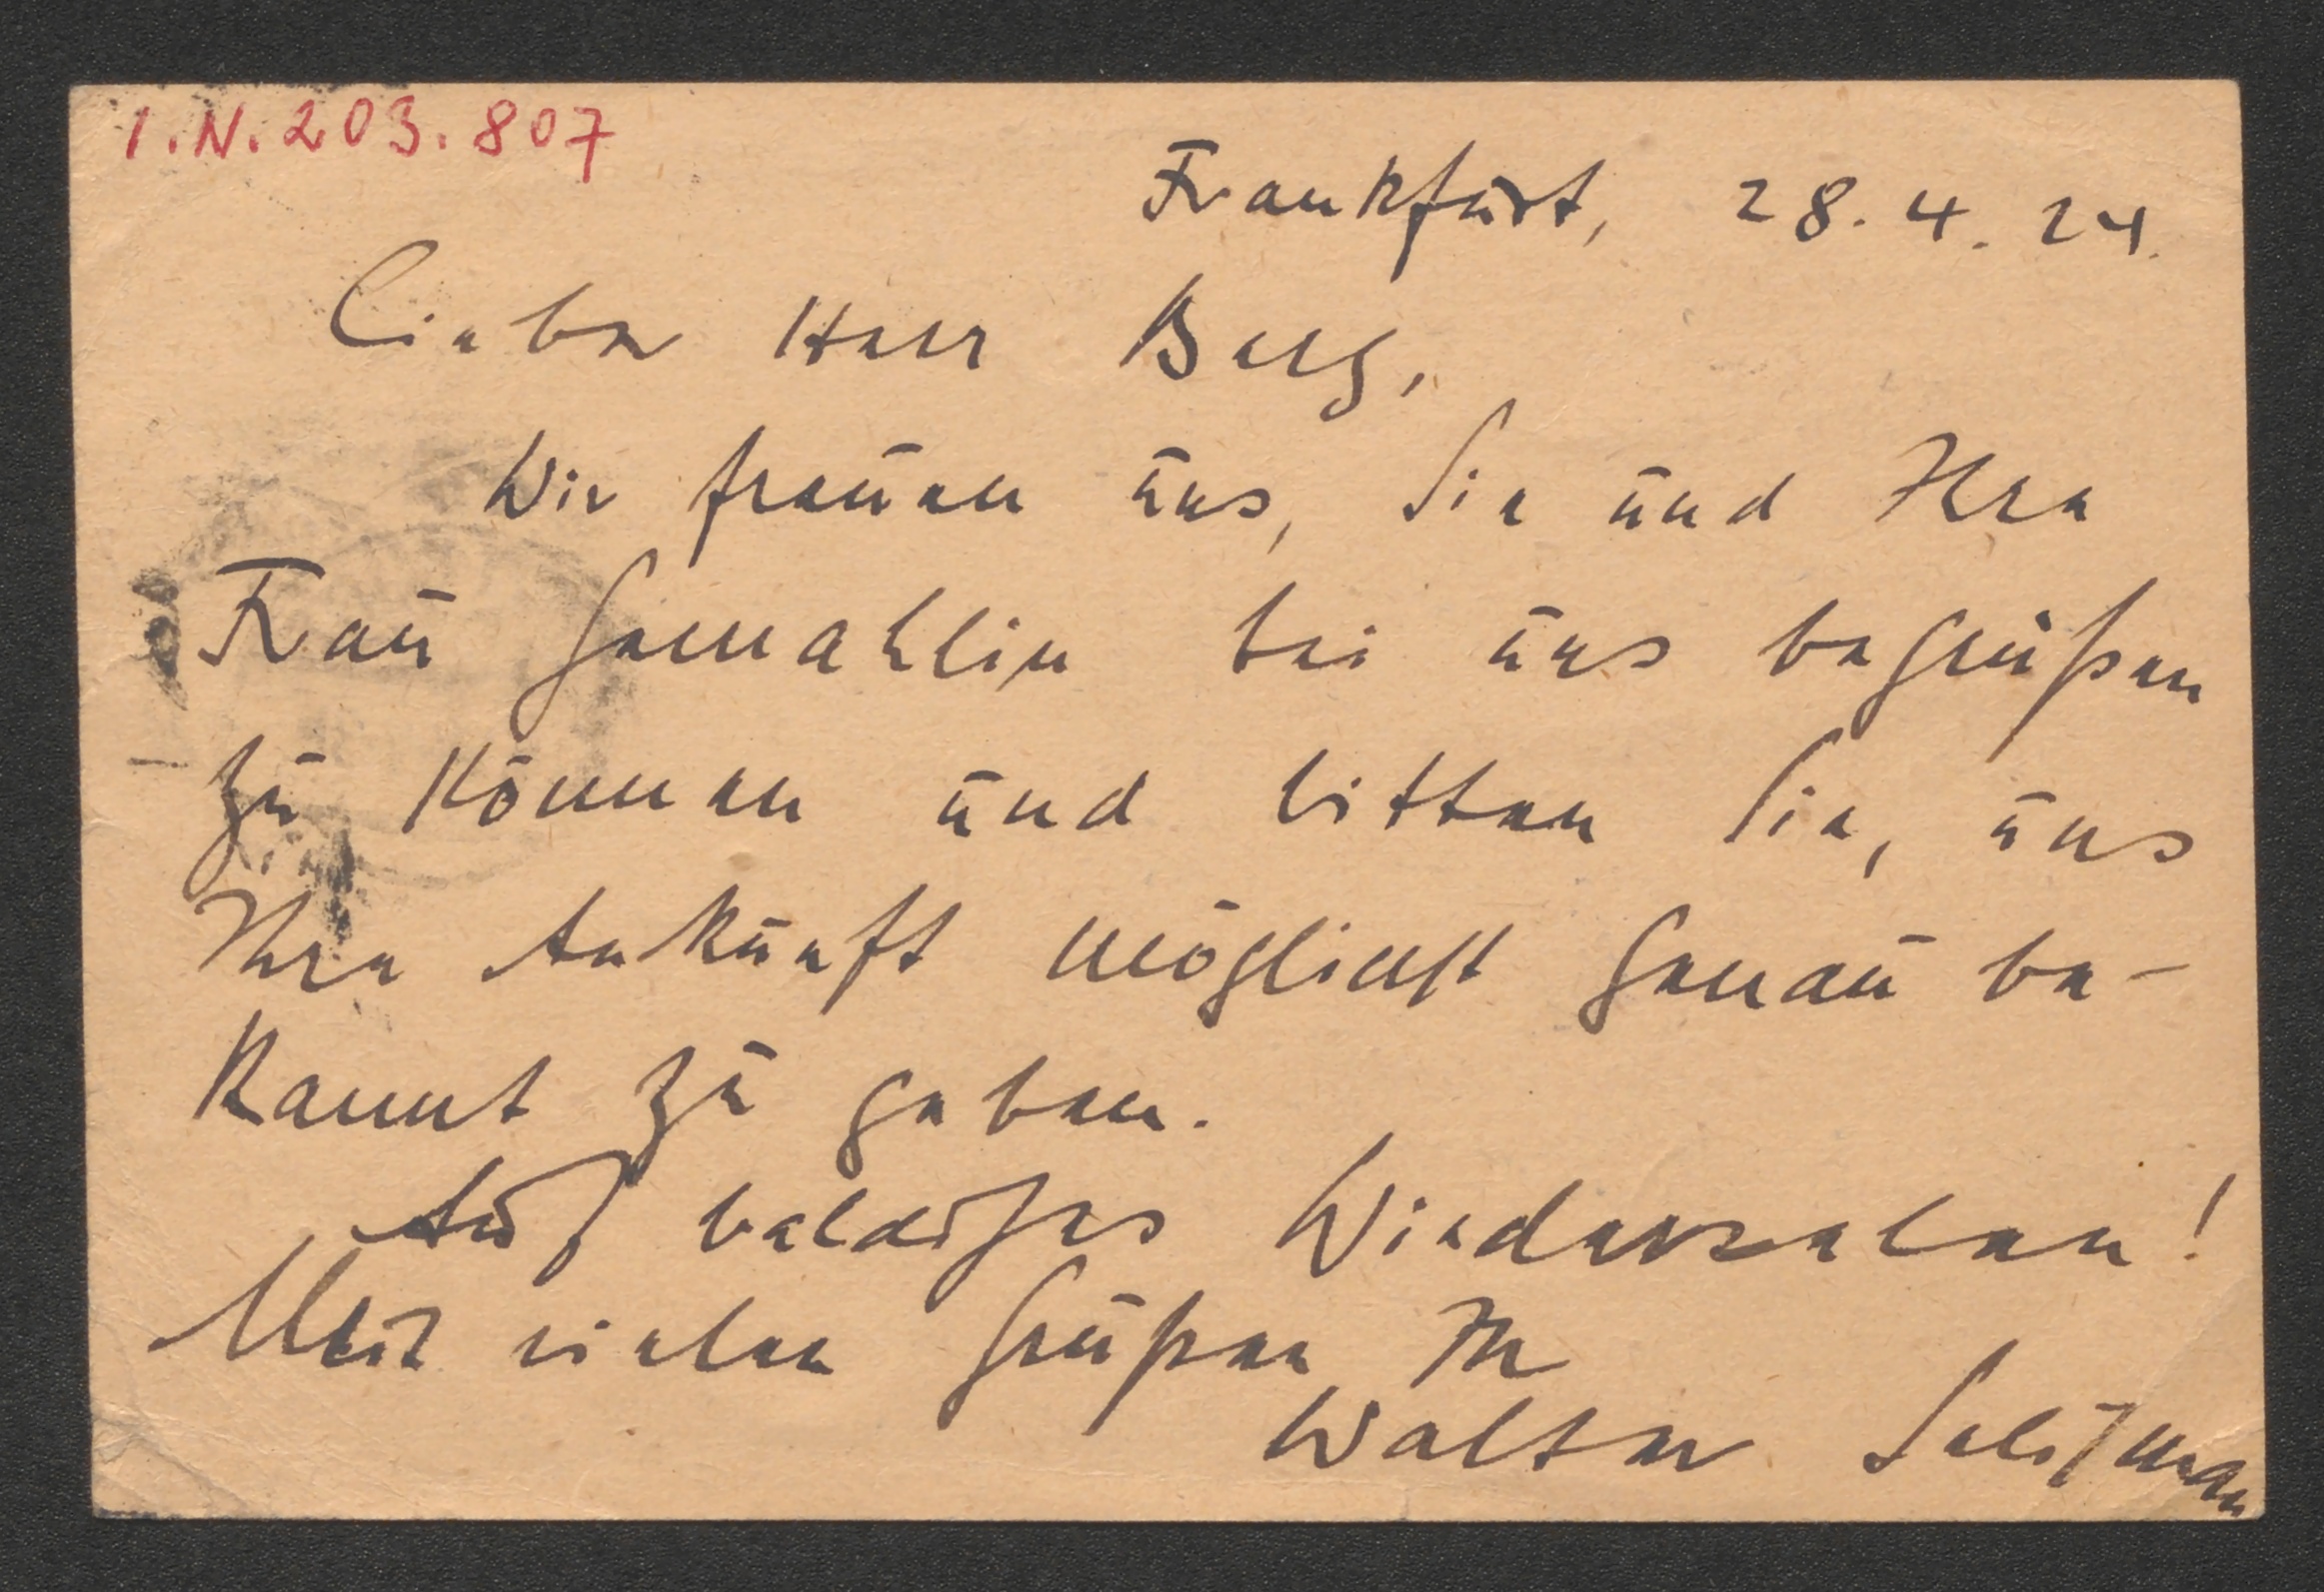 I.N. 203.807
Frankfurt, 28.4.24.
Lieber Herr Berg,
Wir freuen uns, Sie und Ihre
Frau Gemahlin bei uns begrüßen
zu können und bitten Sie, uns
Ihre Ankunft möglichst genau be-
kannt zu geben.
Auf baldiges Wiedersehen!
Mit vielen Grüßen Ihr
Walter Seligmann